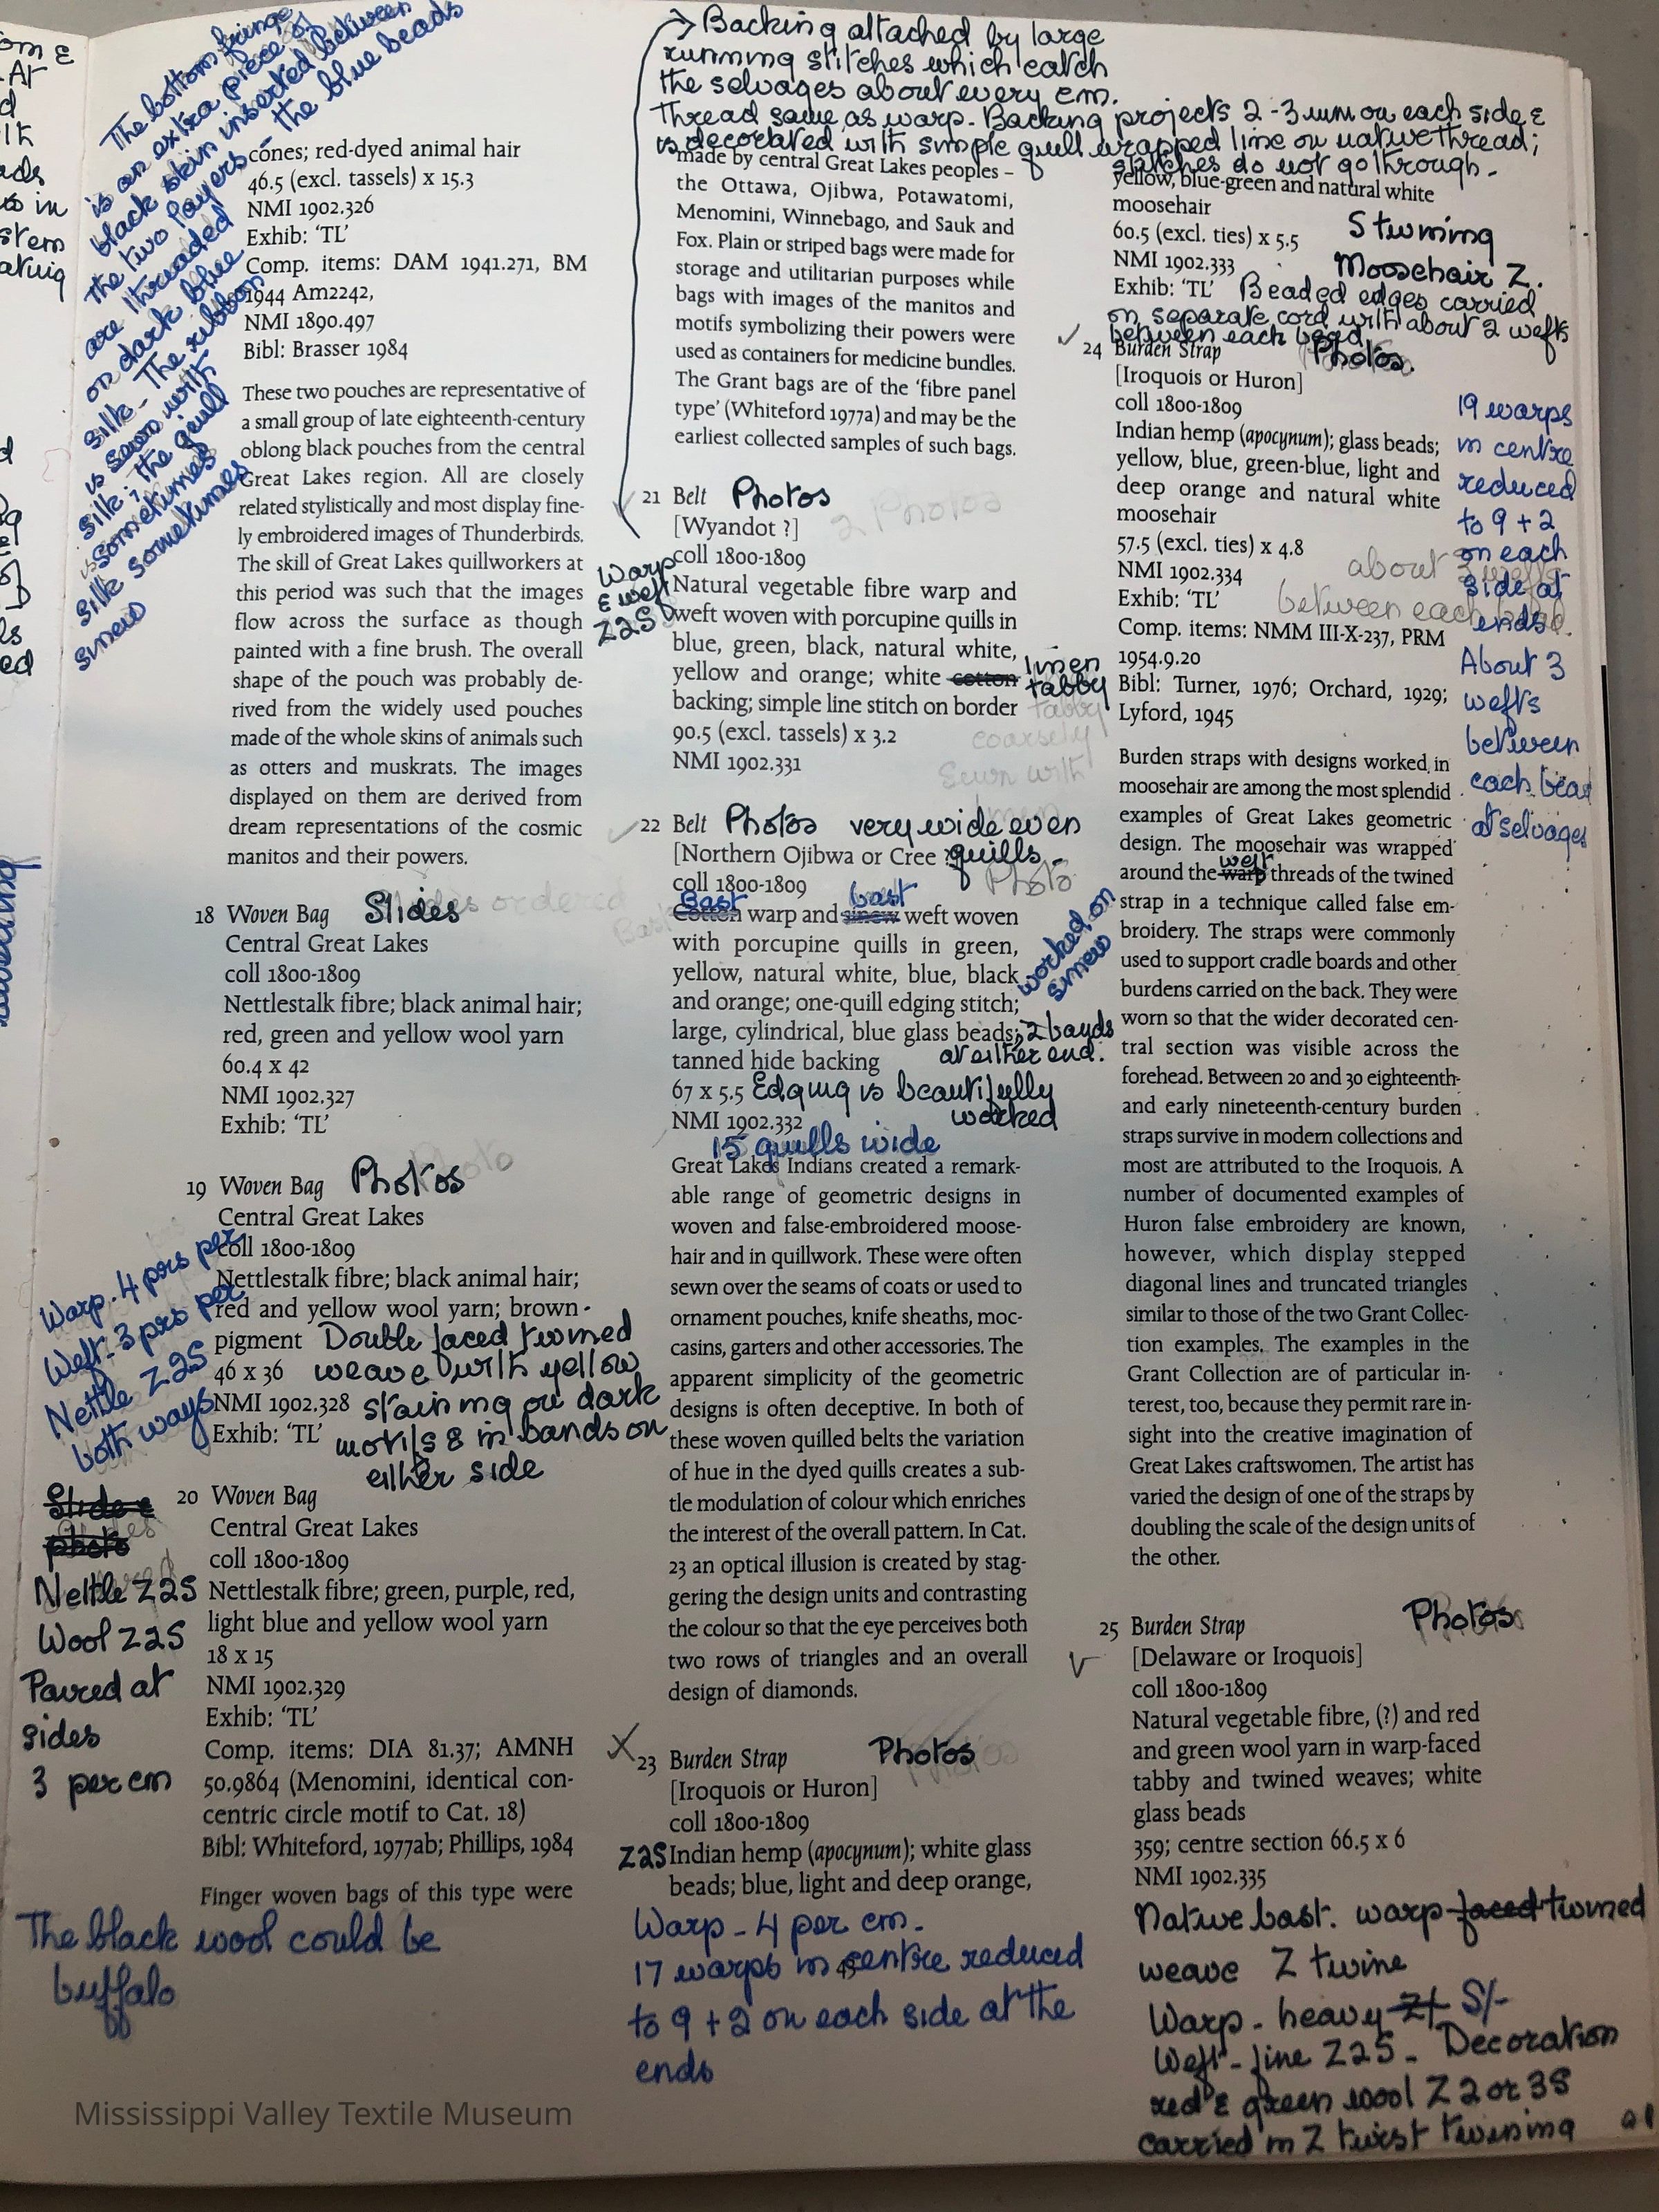 The bottom fringe
is an extra piece of
black skin inserted between
the two layers - the blue beads
are threaded
on dark blue
silk - The ribbon
is sewn with
silk; the quill
sometimes
silk sometimes
sinew
cones; red-dyed animal hair
46.5 (excl. tassels) x 15.3
NMI 1902.326
Exhib: ‘TL’
Comp. items: DAM 1941.271, BM
1944 Am2242,
NMI 1890.497
Bibl: Brasser 1984
These two pouches are representative of
a small group of late eighteenth-century
oblong black pouches from the central
Great Lakes region. All are closely
related stylistically and most display fine-
ly embroidered images of Thunderbirds.
The skill of Great Lakes quillworkers at
this period was such that the images
flow across the surface as though
painted with a fine brush. The overall
shape of the pouch was probably de-
rived from the widely used pouches
made of the whole skins of animals such
as otters and muskrats. The images
displayed on them are derived from
dream representations of the cosmic
manitos and their powers.
18 Woven Bag Slides
Slides ordered
Central Great Lakes
coll 1800-1809
Nettlestalk fibre; black animal hair;
red, green and yellow wool yarn
60.4 x 42
NMI 1902.327
Exhib: ‘TL’
19 Woven Bag Photos
Photo
Central Great Lakes
coll 1800-1809
Nettlestalk fibre; black animal hair;
red and yellow wool yarn; brown
pigment Double faced twined
46 x 36 weave with yellow
NMI 1902.328 staining on dark
Exhib: ‘TL’ motifs & in bands on
either side
Warp - 4 prs per
Weft - 3 prs per
Nettle Z2S
both ways
20 Woven Bag
Central Great Lakes
coll 1800-1809
Nettlestalk fibre; green, purple, red,
light blue and yellow wool yarn
18 x 15
NMI 1902.329
Exhib: ‘TL’
Comp. items: DIA 81.37; AMNH
50.9864 (Menomini, identical con-
centric circle motif to Cat. 18)
Bibl: Whiteford, 1977ab; Phillips, 1984
Finger woven bags of this type were
Slide &
photo
Nettle Z2S
Wool Z2S
Paired at
sides
3 per cm
The black wool could be
buffalo
Backing attached by large
running stitches which catch
the selvages about every cm.
Thread same as warp. Backing projects 2-3 mm on each side &
is decorated with simple quill wrapped line on native thread;
stitches do not go through.
made by central Great Lakes peoples –
the Ottawa, Ojibwa, Potawatomi,
Menomini, Winnebago, and Sauk and
Fox. Plain or striped bags were made for
storage and utilitarian purposes while
bags with images of the manitos and
motifs symbolizing their powers were
used as containers for medicine bundles.
The Grant bags are of the ‘fibre panel
type’ (Whiteford 1977a) and may be the
earliest collected samples of such bags.
21 Belt Photos
2 Photos
[Wyandot ?]
coll 1800-1809
Warp
& weft
Z2S
Natural vegetable fibre warp and
weft woven with porcupine quills in
blue, green, black, natural white,
yellow and orange; white cotton linen
tabby
backing; simple line stitch on border
tabby
coarsely
Sewn with
linen
90.5 (excl. tassels) x 3.2
NMI 1902.331
22 Belt Photos very wide even
quills -
Photo
[Northern Ojibwa or Cree
coll 1800-1809
Bast bast
Cotton warp and sinew weft woven
with porcupine quills in green,
yellow, natural white, blue, black
and orange; one-quill edging stitch;
worked on
sinew
large, cylindrical, blue glass beads; 2 bands
at either end.
tanned hide backing
67 x 5.5 Edging is beautifully
worked
NMI 1902.332
15 quills wide
Great Lakes Indians created a remark-
able range of geometric designs in
woven and false-embroidered moose-
hair and in quillwork. These were often
sewn over the seams of coats or used to
ornament pouches, knife sheaths, moc-
casins, garters and other accessories. The
apparent simplicity of the geometric
designs is often deceptive. In both of
these woven quilled belts the variation
of hue in the dyed quills creates a sub-
tle modulation of colour which enriches
the interest of the overall pattern. In Cat.
23 an optical illusion is created by stag-
gering the design units and contrasting
the colour so that the eye perceives both
two rows of triangles and an overall
design of diamonds.
23 Burden Strap Photos
[Iroquois or Huron]
coll 1800-1809
Z2S Indian hemp (apocynum); white glass
beads; blue, light and deep orange,
Warp - 4 per cm.
17 warps in centre reduced
to 9 + 2 on each side at the
ends
45
yellow, blue-green and natural white
moosehair
60.5 (excl. ties) x 5.5
NMI 1902.333
Exhib: ‘TL’
Twining
Moosehair Z.
Beaded edges carried
on separate cord with about 2 wefts
between each bead
24 Burden Strap Photos.
[Iroquois or Huron]
coll 1800-1809
Indian hemp (apocynum); glass beads;
yellow, blue, green-blue, light and
deep orange and natural white
moosehair
57.5 (excl. ties) x 4.8
NMI 1902.334
Exhib: ‘TL’
about 3 wefts
between each bead.
Comp. items: NMM III-X-237, PRM
1954.9.20
Bibl: Turner, 1976; Orchard, 1929;
Lyford, 1945
19 warps
in centre
reduced
to 9 + 2
on each
side at
ends.
About 3
wefts
between
each bead
at selvages
Burden straps with designs worked in
moosehair are among the most splendid
examples of Great Lakes geometric
design. The moosehair was wrapped
weft
around the warp threads of the twined
strap in a technique called false em-
broidery. The straps were commonly
used to support cradle boards and other
burdens carried on the back. They were
worn so that the wider decorated cen-
tral section was visible across the
forehead. Between 20 and 30 eighteenth-
and early nineteenth-century burden
straps survive in modern collections and
most are attributed to the Iroquois. A
number of documented examples of
Huron false embroidery are known,
however, which display stepped
diagonal lines and truncated triangles
similar to those of the two Grant Collec-
tion examples. The examples in the
Grant Collection are of particular in-
terest, too, because they permit rare in-
sight into the creative imagination of
Great Lakes craftswomen. The artist has
varied the design of one of the straps by
doubling the scale of the design units of
the other.
25 Burden Strap Photos
[Delaware or Iroquois]
coll 1800-1809
Natural vegetable fibre, (?) and red
and green wool yarn in warp-faced
tabby and twined weaves; white
glass beads
359; centre section 66.5 x 6
NMI 1902.335
Native bast. warp faced twined
weave Z twine
Warp - heavy Z/- S/-
Weft - fine Z2S - Decoration
red & green wool Z 2 or 3S
carried in Z twist twining
Mississippi Valley Textile Museum